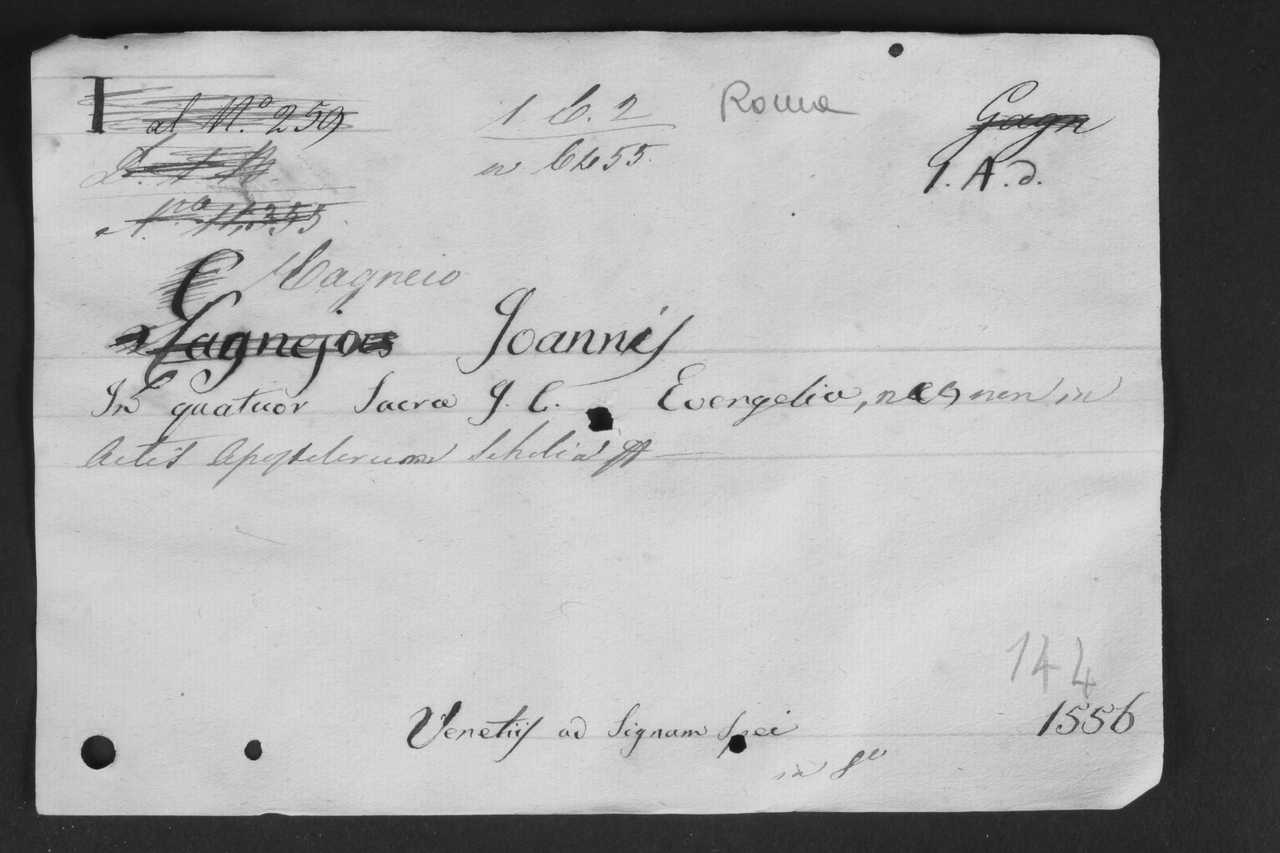 I al N.º 259
1 C. 2
Roma
Gagn
n 6455.
1. A. d.
Gagneio
Gagnejoes Joannis
In quatuor Sacra J. C. Evengelia, necnon in
Actis Apostolorum Scholia
144
Venetiis ad Signam Spei 1556
in 8º